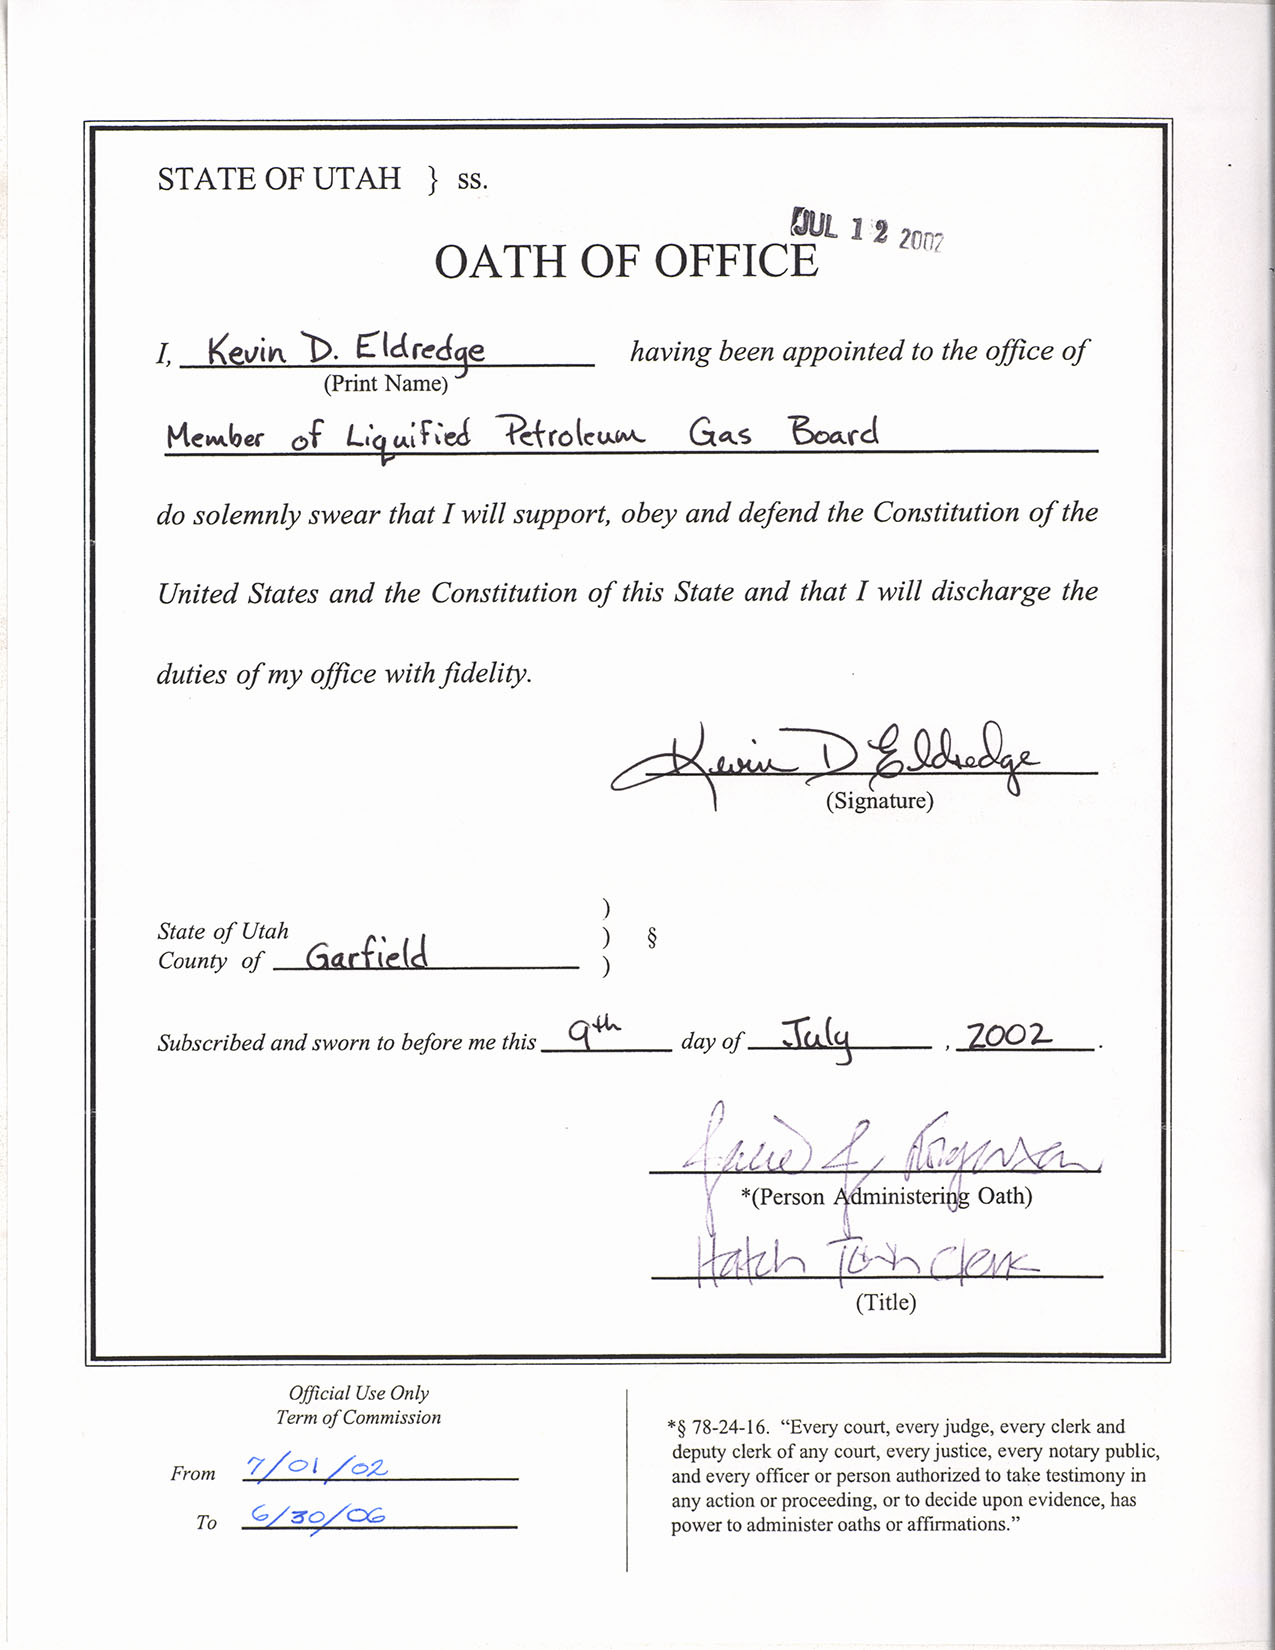 STATE OF UTAH } ss.
JUL 12 2002
OATH OF OFFICE
I, Kevin D. Eldredge having been appointed to the office of
(Print Name)
Member of Liquified Petroleum Gas Board
do solemnly swear that I will support, obey and defend the Constitution of the
United States and the Constitution of this State and that I will discharge the
duties of my office with fidelity.
Kevin D Eldredge
(Signature)
)
State of Utah ) §
County of Garfield )
Subscribed and sworn to before me this 9th day of July , 2002 .
*(Person Administering Oath)
Hatch Town Clerk
(Title)
Official Use Only
Term of Commission
From 7/01/02
To 6/30/06
*§ 78-24-16. “Every court, every judge, every clerk and
deputy clerk of any court, every justice, every notary public,
and every officer or person authorized to take testimony in
any action or proceeding, or to decide upon evidence, has
power to administer oaths or affirmations.”